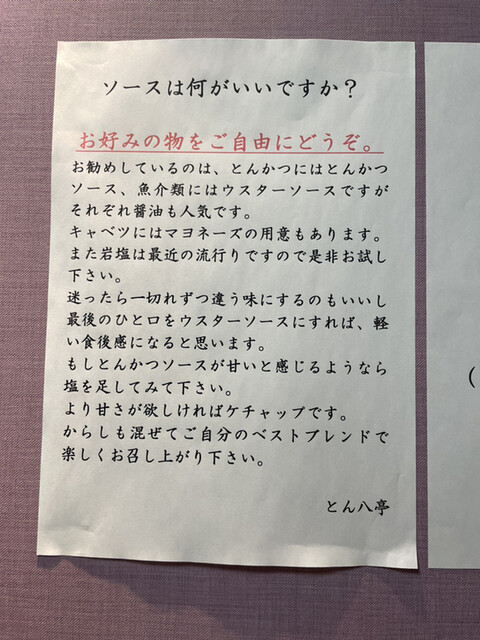 ソースは何がいいですか？
お好みの物をご自由にどうぞ。
お勧めしているのは、とんかつにはとんかつ
ソース、魚介類にはウスターソースですが
それぞれ醤油も人気です。
キャベツにはマヨネーズの用意もあります。
また岩塩は最近の流行りですので是非お試し
下さい。
迷ったら一切れずつ違う味にするのもいいし
最後のひと口をウスターソースにすれば、軽
い食後感になると思います。
もしとんかつソースが甘いと感じるようなら
塩を足してみて下さい。
より甘さが欲しければケチャップです。
からしも混ぜてご自分のベストブレンドで
楽しくお召し上がり下さい。
とん八亭
（